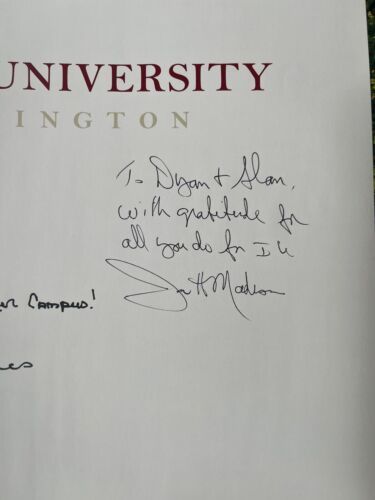 UNIVERSITY
INGTON
To Dyan + Alan,
with gratitude for
all you do for IU
Campus!